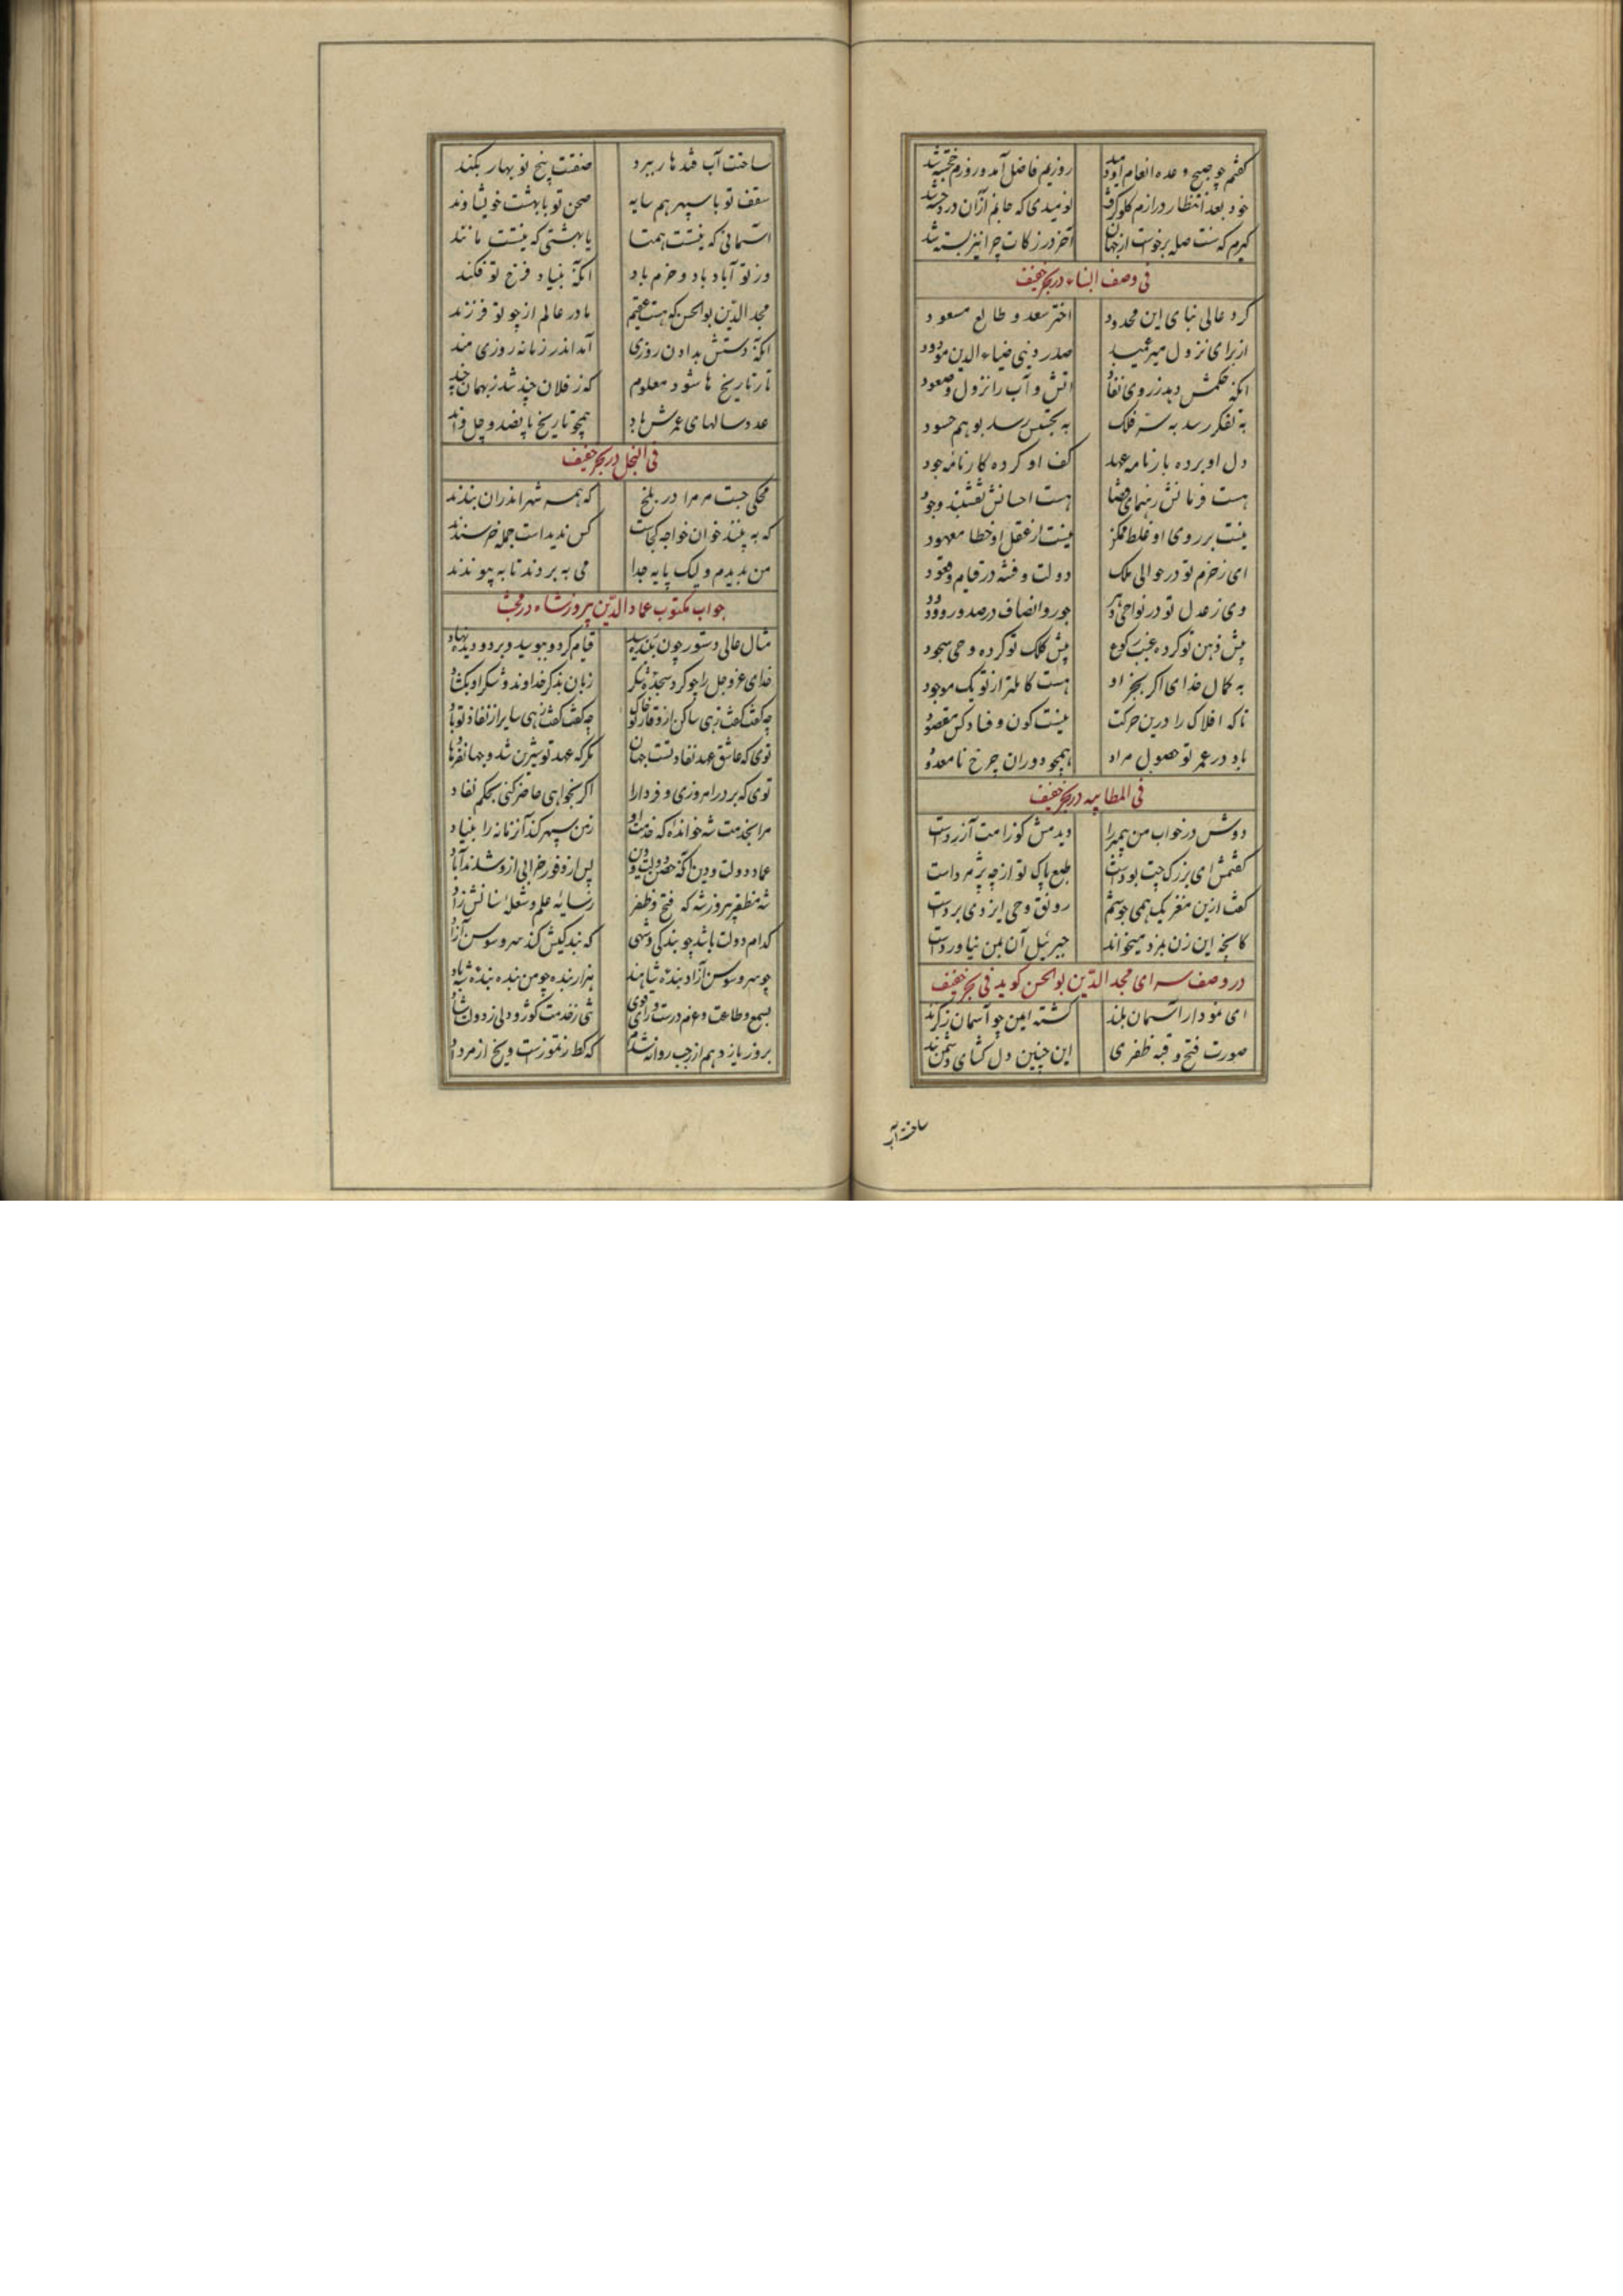 کفتم چو صبح وعده انعام او دمید روزیم فاضل آمد و روزم خجسته شد
خود بعد انتظار درازم کلو کرفت نومیدی که جانم ازان در دخسته شد
کیرم که سنت صله برخواست از جهان آخر در زکات چرا نیز بسته شد
فی وصف البناء در بحر خفیف
کرد عالی بنای این محدود اختر سعد و طالع مسعود
از برای نزول میر عمید صدر دنیی ضیاء الدین مودود
انکه حکمش دهد ز روی نفاذ اتش و آب را نزول و صعود
به تفکر رسد به سر فلک به تجسس رسد بوهم حسود
دل او برده بارنامه عهد کف او کرده کارنامه جود
هست فرمانش رهنمای قضا هست احسانش نقشبند وجود
نیست بر روی او غلط ممکن نیست از عقل او خطا معهود
ای ز حزم تو در حوالی ملک دولت و فتنه در قیام و قعود
وی ز عدل تو در نواحی دهر جور و انصاف در صدور و ورود
پیش ذهن تو کرده غیب رکوع پیش کلک تو کرده وحی سجود
به کمال خدای اکر بجز او هست کاملتر از تو یک موجود
تا که افلاک را درین حرکت نیست کون و فساد کس مقصود
باد در عمر تو حصول مراد همچو دوران چرخ نامعدود
فی المطایبه در بحر خفیف
دوش در خواب من پیمبر را دیدمش کوز امت آزرد است
کفتمش ای بزرک چت بود است طبع پاک تو از چه پژمرد است
کفت ازین مغزیک همی جوشم رونق وحی ایزدی بردست
کانچه این زن بمزد میخواند جبرئیل آن بمن نیاوردست
در وصف سرای مجد الدین بوالحسن کوید فی بحر خفیف
ای نمودار آسمان بلند کشته ایمن چو آسمان ز کزند
صورت فتح و قبه ظفری این چنین دل کشای و دشمن بند
ساخت آب
ساحت آب قندهار ببرد صفتت بیخ نوبهار بکند
سقف تو با سپهر هم سایه صحن تو با بهشت خویشاوند
آسمانی که نیستت همتا یا بهشتی که نیستت مانند
وز تو آباد باد و خرم باد انکه بنیاد فرخ تو فکند
مجد الدین بوالحسن که هست عقیم مادر عالم از چو تو فرزند
انکه دستش بدادن روزی آمد اندر زمانه روزی مند
تا ز تاریخ ها شود معلوم که ز فلان چند شد ز بهمان چند
عدد سالهای عمرش باد همچو تاریخ پانصد و چل و اند
فی البخل در بحر خفیف
محکی جست مر مرا در بلخ که همه شهر اندران بندند
که به بینند خوان خواجه کجاست کس ندیداست جمله خرسندند
من بدیدم ولیک پایه جدا می به بردند تا به پیوندند
جواب مکتوب عماد الدین پیروزشاه در مجتث
مثال عالی دستور چون ببنده رسید قیام کرد و ببوسید و بر دو دیده نهاد
خدای عز و جل را چو کرد سجده شکر زبان بذکر خداوند و شکر او بکشاد
چه کفت کفت زهی ساکن از وقار تو خاک چه کفت کفت زهی سایر از نفاذ تو باد
توی که عاشق عهد نفاد تست جهان مکر که عهد تو شیرین شد و جهان فرهاد
توی که بر در امروزی و فردا را اکر بخواهی حاضر کنی بحکم نفاد
مرا بخدمت شه خوانده که خدمت او زمین سپهر کند آنزمانه را بنیاد
عماد دولت و دین انکه حصن دولت و دین پس از وفور خرابی ازو شدند آباد
شه مظفر پیروزشه که فتح و ظفر ز سایه علم و شعله سنانش زاد
کدام دولت باشد چو بندکی شهی که بندکیش کند سرو و سوسن آزاد
چو سرو و سوسن آزاد بنده شاهند هزار بنده چو من بنده بنده شه باد
بسمع و طاعت و عزم درست و رای قوی
بروز یازدهم از رجب روانه شدم